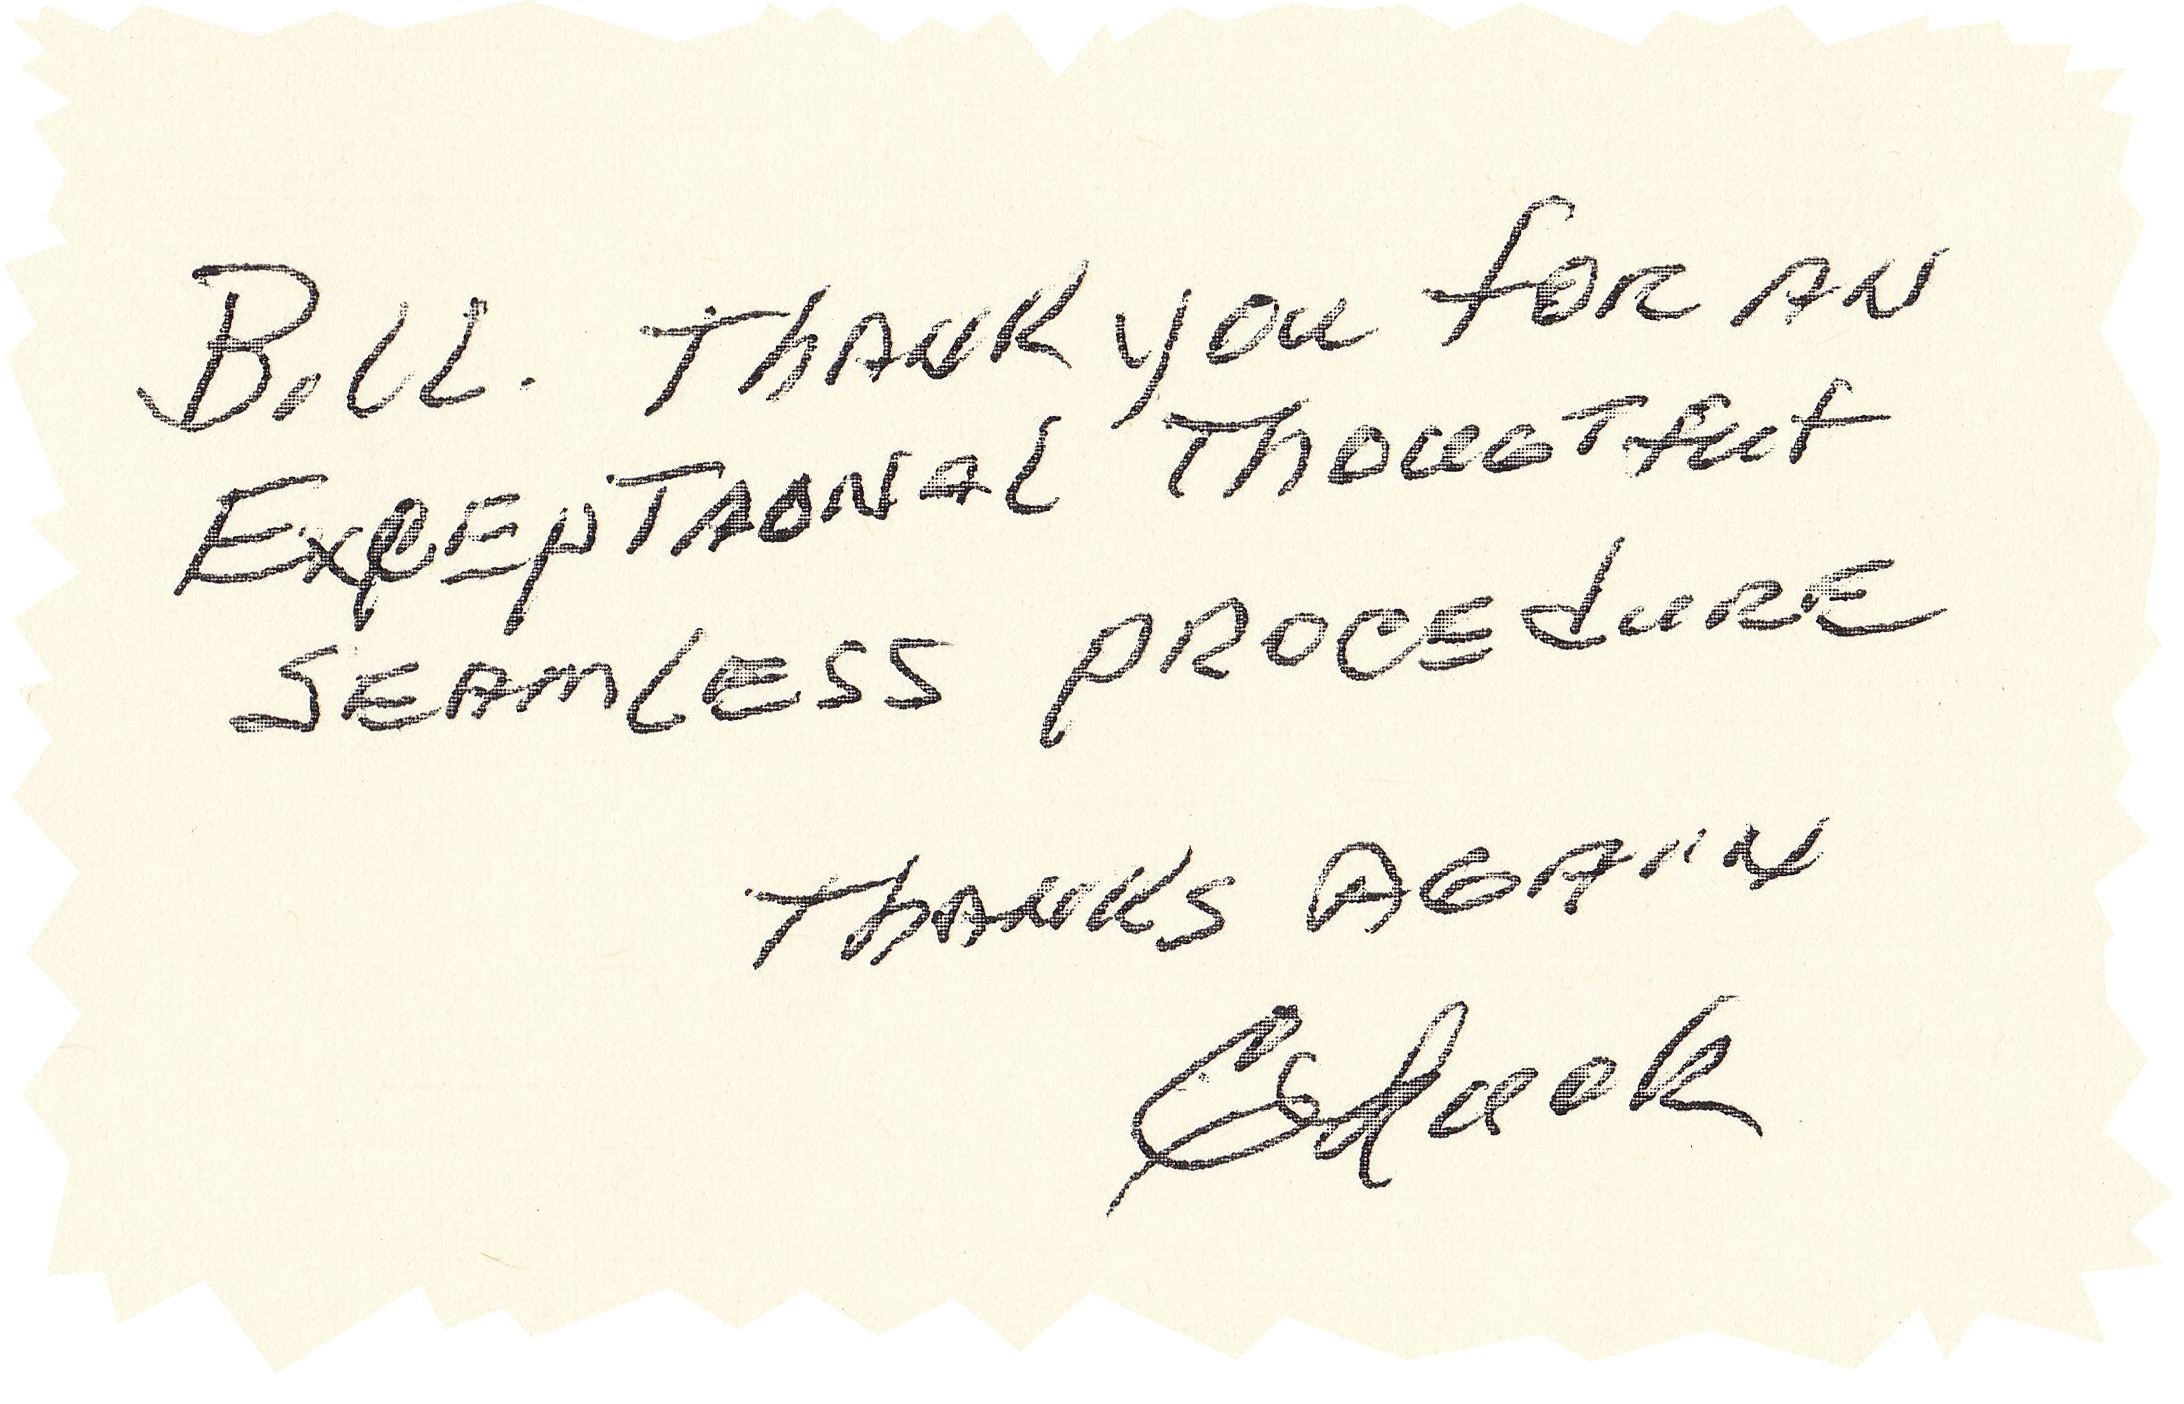 Bill. Thank you for an
Exceptional Thougtful +
seamless procedure
Thanks Again
Chuck